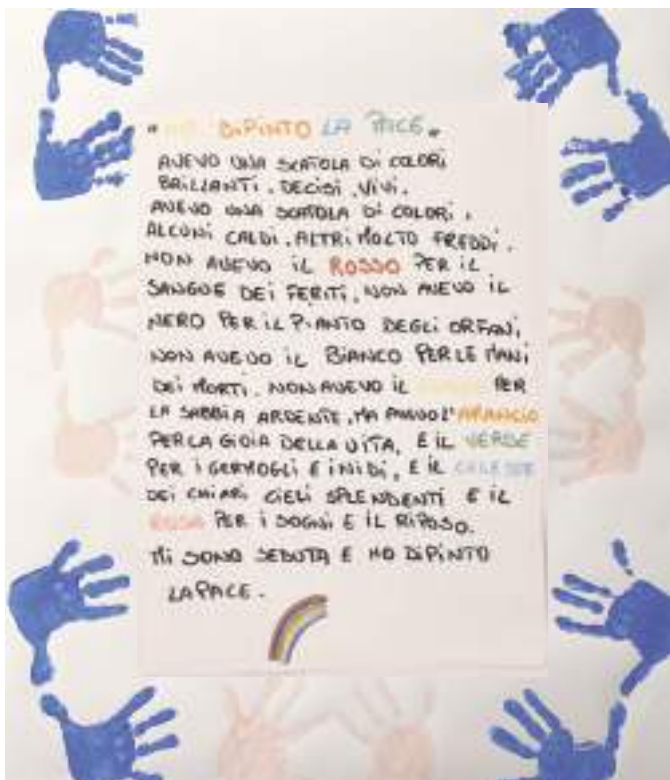 "HO DIPINTO LA PACE"
AVEVO UNA SCATOLA DI COLORI
BRILLANTI, DECISI, VIVI.
AVEVO UNA SCATOLA DI COLORI,
ALCUNI CALDI, ALTRI MOLTO FREDDI.
NON AVEVO IL ROSSO PER IL
SANGUE DEI FERITI, NON AVEVO IL
NERO PER IL PIANTO DEGLI ORFANI,
NON AVEVO IL BIANCO PER LE MANI
DEI MORTI. NON AVEVO IL GIALLO PER
LA SABBIA ARDENTE, MA AVEVO L'ARANCIO
PER LA GIOIA DELLA VITA, E IL VERDE
PER I GERMOGLI E I NIDI, E IL CELESTE
DEI CHIARI CIELI SPLENDENTI E IL
ROSA PER I SOGNI E IL RIPOSO.
MI SONO SEDUTA E HO DIPINTO
LA PACE.